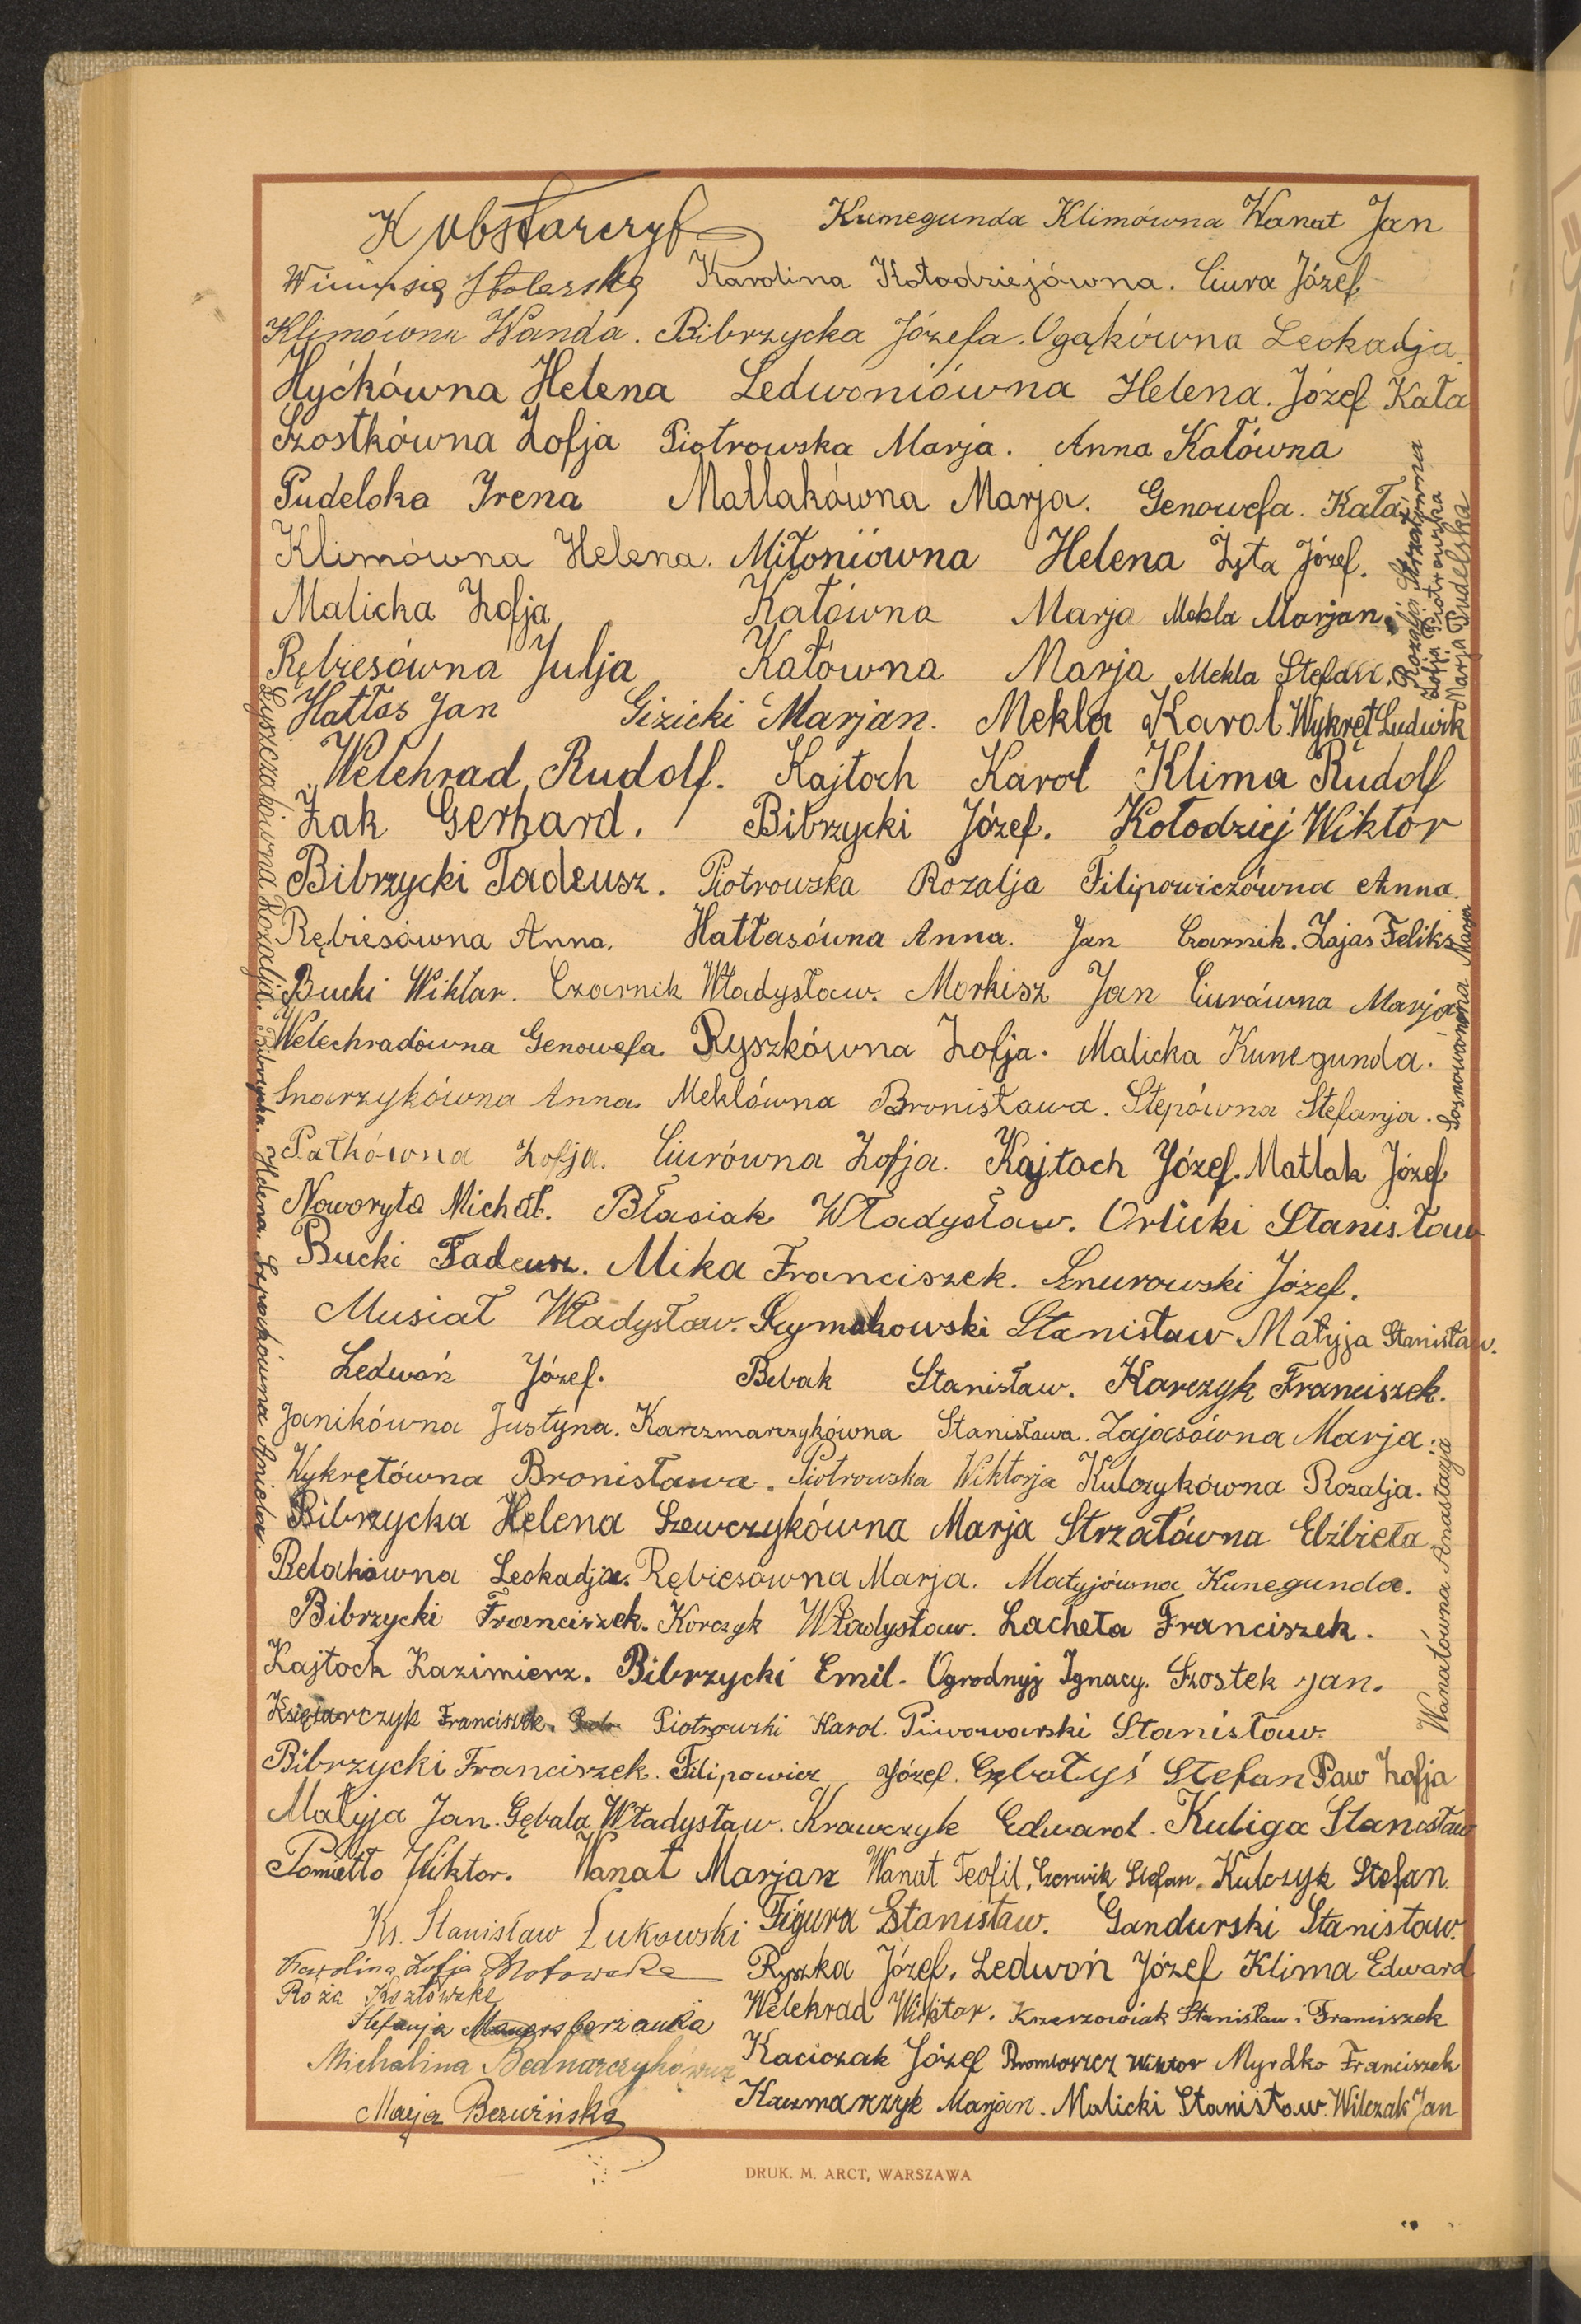 K Obstarczyk Kunegunda Klimówna Wanat Jan
Stolarską Karolina Kołodziejówna. Ciura Józef
Klimówna Wanda. Bibrzycka Józefa. Ogąkówna Leokadja
Hyćkówna Helena Ledwoniówna Helena. Józef Kała
Szostkówna Zofja Piotrowska Marja. Anna Kałówna
Pudelska Irena Matlakówna Marja. Genowefa. Kała.
Klimówna Helena. Miłoniówna Helena Zyta Józef.
Malicka Zofja Kałówna Marja Mekla Marjan.
Rębiesówna Julja Kałówna Marja Mekla Stefan.
Hattas Jan Gizicki Marjan. Mekla Karol. Wykręt Ludwik
Welehrad Rudolf. Kajtoch Karol Klima Rudolf
Żak Gerhard. Bibrzycki Józef. Kołodziej Wiktor
Bibrzycki Tadeusz. Piotrowska Rozalja Filipowiczówna Anna.
Rębiesówna Anna. Hattasówna Anna. Jan Czarnik. Zajas Feliks
Bucki Wiktor. Czarnik Władysław. Morkisz Jan Ciurówna Marja
Welechradówna Genowefa. Ryszkówna Zofja. Malicka Kunegunda.
Snarzykówna Anna. Meklówna Bronisława. Stepówna Stefanja.
Patkówna Zofja. Ciurówna Zofja. Kajtoch Józef. Matlak Józef
Noworyta Michał. Błasiak Władysław. Orlicki Stanisław
Bucki Tadeusz. Mika Franciszek. Sznurowski Józef.
Musiał Władysław. Szymakowski Stanisław Matyja Stanisław.
Ledwoń Józef. Bebak Stanisław. Karczyk Franciszek.
Janikówna Justyna. Karczmarczykówna Stanisława. Zajasówna Marja.
Wykrętówna Bronisława. Piotrowska Wiktorja Kulczykówna Rozalja.
Bibrzycka Helena Szewczykówna Marja Strzałówna Elżbieta
Bebakówna Leokadja. Rębiesówna Marja. Matyjówna Kunegunda.
Bibrzycki Franciszek. Korczyk Władysław. Lacheta Franciszek.
Kajtoch Kazimierz. Bibrzycki Emil. Ogrodnyj Ignacy. Szostek Jan.
Księżarczyk Franciszek. Piotrowski Karol. Piwowarski Stanisław.
Bibrzycki Franciszek. Filipowicz Józef. Stefan Paw Zofja
Matyja Jan. Gębala Władysław. Krawczyk Edward. Kuliga Stanisław
Pomietło Wiktor. Wanat Marjan Wanat Teofil. Czerwik Stefan. Kulczyk Stefan.
Ks. Stanisław Łukowski Figura Stanisław. Gandurski Stanisław.
Karolina Zofja Ryszka Józef. Ledwoń Józef Klima Edward
Róża Kozłowska Welehrad Wiktor. Krzeszowiak Stanisław i Franciszek
Stefanja Kaciczak Józef Bromboszcz Wiktor Myrdko Franciszek
Michalina Bednarczykówna Kaczmarczyk Marjan. Malicki Stanisław. Wilczak Jan
Marja Bezwińska
Rozalja Strzałówna
Zofja Piotrowska
Marja Pudelska
Sosnowanna Marja
Wanatówna Anastazja
Łyszczakówna Rozalja. Bibrzycka. Helena. Szpochówna Aniela.
DRUK. M. ARCT, WARSZAWA